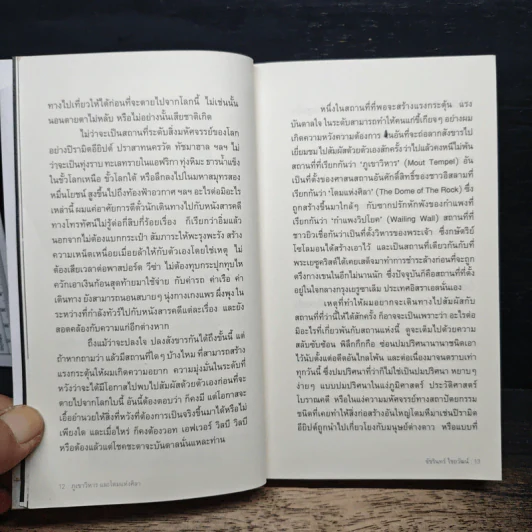 ทางไปเที่ยวให้ได้ก่อนที่จะตายไปจากโลกนี้ ไม่เช่นนั้น
นอนตายตาไม่หลับ หรือไม่อย่างนั้นเสียชาติเกิด
ไม่ว่าจะเป็นสถานที่ระดับสิ่งมหัศจรรย์ของโลก
อย่างปิรามิดอียิปต์ ปราสาทนครวัด ทัชมาฮาล ฯลฯ ไม่
ว่าจะเป็นทุ่งราบ ทะเลทรายในแอฟริกา ทุ่งหิมะ ธารน้ำแข็ง
ในขั้วโลกเหนือ ขั้วโลกใต้ หรือลึกลงไปในมหาสมุทรสอง
หมื่นโยชน์ สูงขึ้นไปถึงท้องฟ้าอวกาศ ฯลฯ อะไรต่อมิอะไร
เหล่านี้ ผมแค่อาศัยการดีดิ้วนักเดินทางไปกับหนังสารคดี
ทางโทรทัศน์ไม่รู้ต่อกี่สิบกี่ร้อยเรื่อง ก็เรียกว่าอิ่มแล้ว
นอกจากไม่ต้องแบกกระเป๋า สัมภาระให้พะรุงพะรัง สร้าง
ความเหน็ดเหนื่อยเมื่อยล้าให้กับตัวเองโดยใช่เหตุ ไม่
ต้องเสียเวลาต่อพาสปอร์ต วีซ่า ไม่ต้องทุบกระปุกทุบไห
ควักเอาเงินก้อนสุดท้ายมาใช้จ่าย กับค่ารถ ค่าเรือ ค่า
เดินทาง ยังสามารถนอนสบายๆ นุ่งกางเกงแพร ผึ่งพุงใน
ระหว่างที่กำลังทัวร์ไปกับหนังสารคดีแต่ละเรื่อง และยัง
สอดคล้องกับความแก่อีกต่างหาก
ถึงแม้ว่าจะปลงใจ ปลงสังขารกันได้ถึงขั้นนี้ แต่
ถ้าหากถามว่า แล้วมีสถานที่ใดๆ บ้างไหม ที่สามารถสร้าง
แรงกระตุ้นให้ผมเกิดความอยาก ความมุ่งมั่นในระดับที่
หวังว่าจะได้มีโอกาสไปพบไปสัมผัสด้วยตัวเองก่อนที่จะ
ตายไปจากโลกใบนี้ อันนี้ต้องตอบว่า ก็คงมี แต่โอกาสจะ
เอื้ออำนวยให้สิ่งที่หวังที่ต้องการเป็นจริงขึ้นมาได้หรือไม่
เพียงใด และเมื่อไหร่ ก็คงต้องวอท เอฟเวอร์ วิลบี วิลบี
หรือต้องแล้วแต่โชคชะตาจะบันดาลนั่นแหละท่าน
12 ภูเขาวิหาร และโดมแห่งศิลา
หนึ่งในสถานที่ที่พอจะสร้างแรงกระตุ้น แรง
บันดาลใจ ในระดับสามารถทำให้คนแก่ขี้เกียจๆ อย่างผม
เกิดความหวังความต้องการ อันที่จะถ่อสังขารไป
เยี่ยมชม ไปสัมผัสด้วยตัวเองสักครั้งว่าไปแล้วคงหนีไม่พ้น
สถานที่ที่เรียกกันว่า 'ภูเขาวิหาร' (Mout Tempel) อัน
เป็นที่ตั้งของศาสนสถานอันศักดิ์สิทธิ์ของชาวอิสลามที่
เรียกกันว่า 'โดมแห่งศิลา' (The Dome of The Rock) ซึ่ง
ถูกสร้างขึ้นมาใกล้ๆ กับซากปรักหักพังของกำแพงที่
เรียกกันว่า 'กำแพงวิปโยค' (Wailing Wall) สถานที่ที่
ชาวยิวเชื่อกันว่าเป็นที่ตั้งวิหารของพระเจ้า ซึ่งกษัตริย์
โซโลมอนได้สร้างเอาไว้ และเป็นสถานที่เดียวกันกับที่
พระเยซูคริสต์ได้เคยเสด็จมาทำการชำระล้างก่อนที่จะถูก
ตรึงกางเขนในอีกไม่นานนัก ซึ่งปัจจุบันก็คือสถานที่ที่ตั้ง
อยู่ในใจกลางกรุงเยรูซาเลิม ประเทศอิสราเอลนั่นเอง
เหตุที่ทำให้ผมอยากจะเดินทางไปสัมผัสกับ
สถานที่ที่ว่านี้ให้ได้สักครั้ง ก็อาจจะเป็นเพราะว่า อะไรต่อ
มิอะไรที่เกี่ยวพันกับสถานแห่งนี้ ดูจะเต็มไปด้วยความ
สลับซับซ้อน พิลึกกึกกือ ซ่อนปมปริศนานานาชนิดเอา
ไว้นับตั้งแต่อดีตอันไกลโพ้น และต่อเนื่องมาจนตราบเท่า
ทุกวันนี้ ซึ่งปมปริศนาที่ว่าก็ไม่ใช่เป็นปมปริศนา หยาบๆ
ง่ายๆ แบบปมปริศนาในแง่ภูมิศาสตร์ ประวัติศาสตร์
โบราณคดี หรือในแง่ความมหัศจรรย์ทางสถาปัตยกรรม
ชนิดที่เคยทำให้สิ่งก่อสร้างอันใหญ่โตมหึมาเช่นปิรามิด
อียิปต์ถูกนำไปเกี่ยวโยงกับมนุษย์ต่างดาว หรือแบบที่
ชัชรินทร์ ไชยวัฒน์ 13